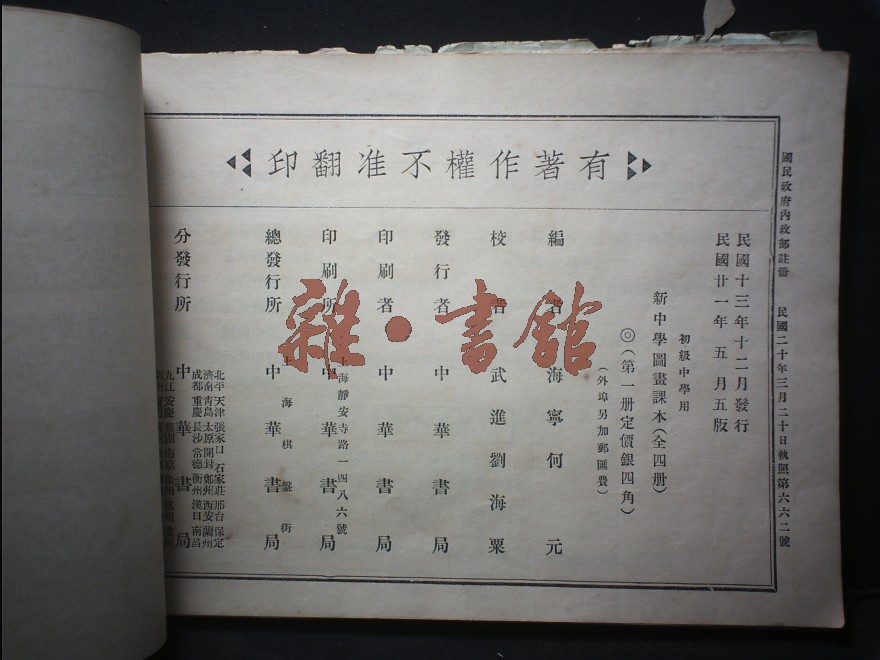 國民政府內政部註冊 民國二十年三月二十日執照第六六二號
有著作權不准翻印
民國十三年十二月發行
民國廿一年五月五版
初級中學用
新中學圖畫課本(全四册)
◎(第一册定價銀四角)
(外埠另加郵匯費)
編者 海寧何元
校者 武進劉海粟
發行者 中華書局
印刷者 中華書局
上海靜安寺路一四八六號
印刷所 中華書局
上海棋盤街
總發行所 中華書局
北平 天津 張家口 石家莊 邢台 保定
濟南 青島 太原 開封 鄭州 西安 蘭州
成都 重慶 長沙 常德 衡州 漢口 南昌
分發行所 中華書局
九江 安慶 蕪湖 南京
雜·書館